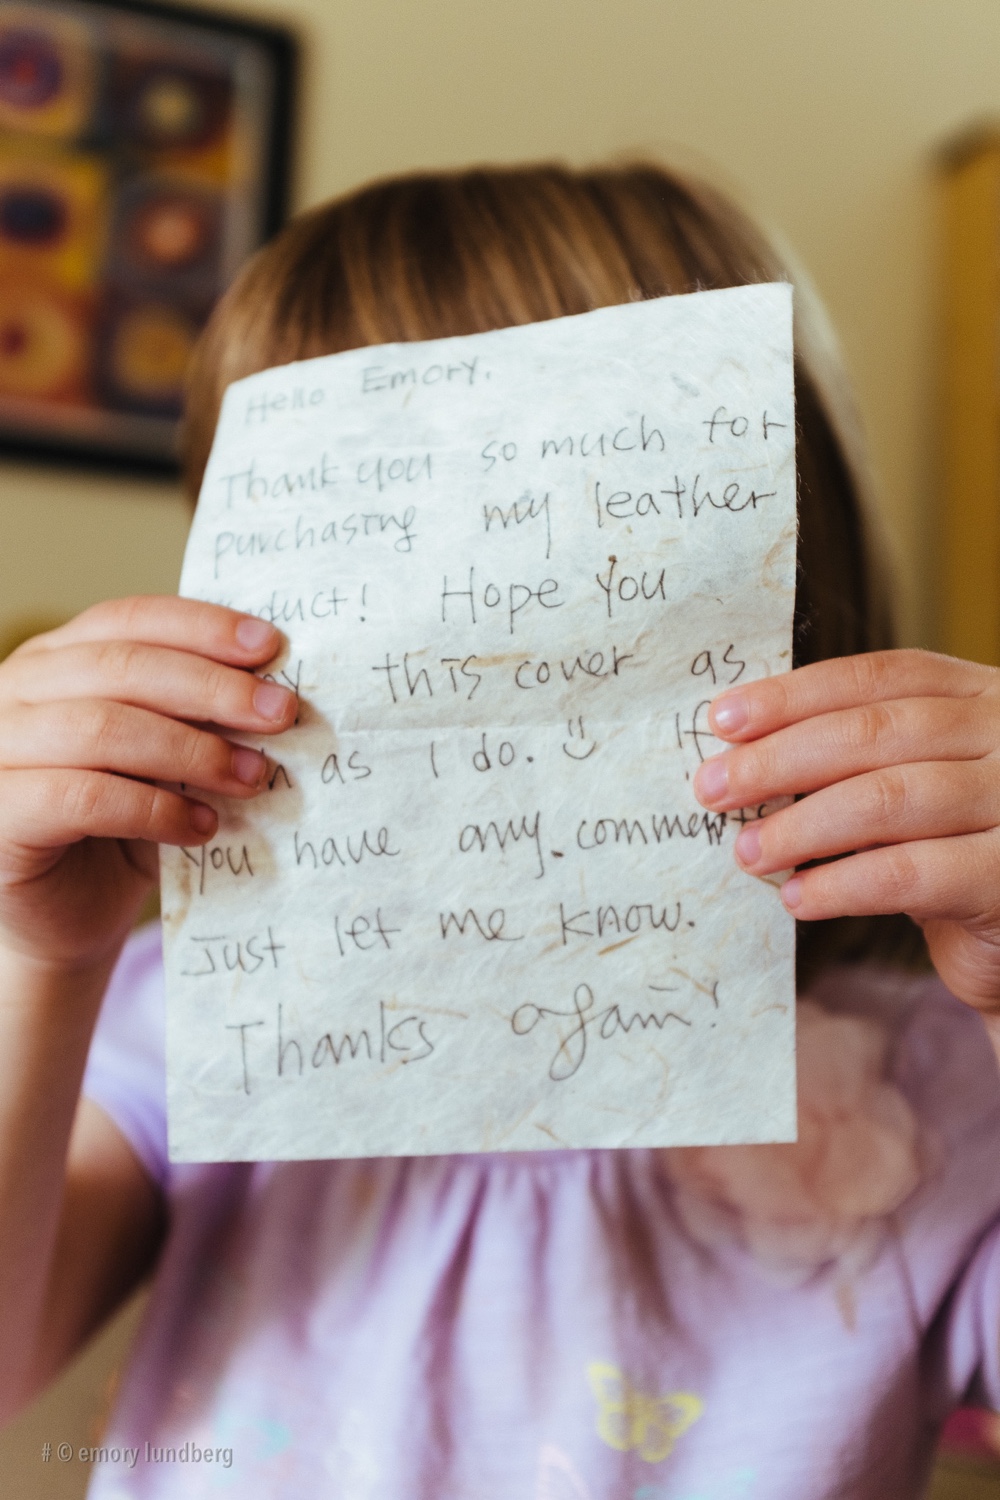 Hello Emory.
Thank you so much for
purchasing my leather
duct! Hope you
this cover as
as I do. If
You have any comments
Just let me know.
Thanks again!
# © emory lundberg